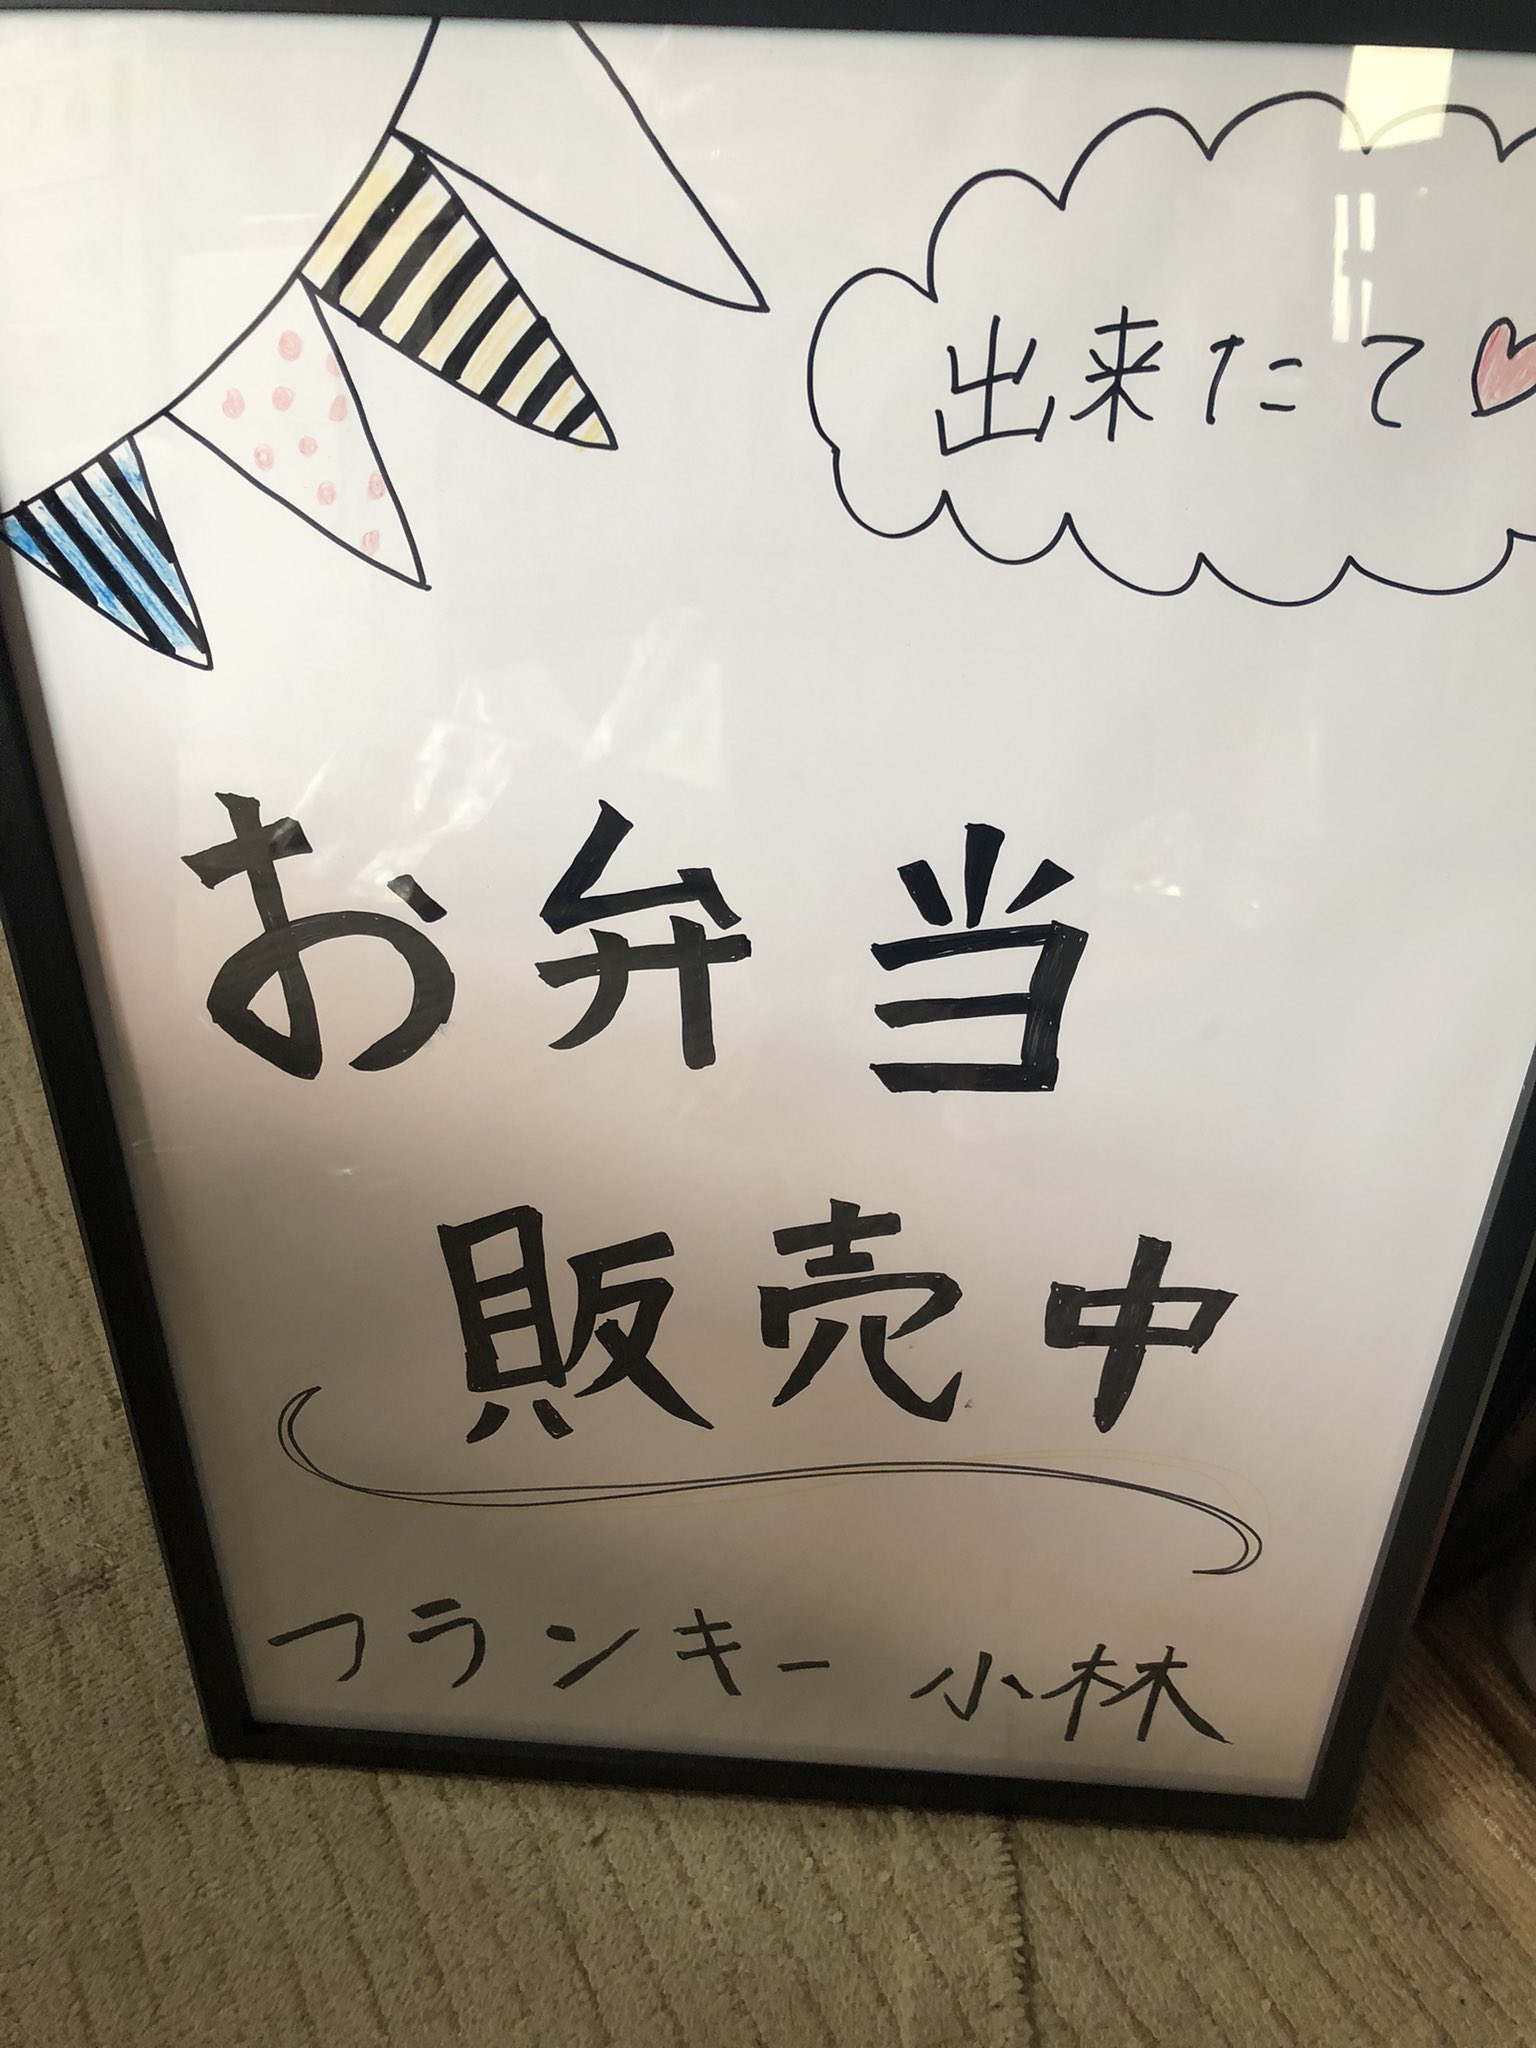 出来たて♥
お弁当
販売中
フランキー 小林